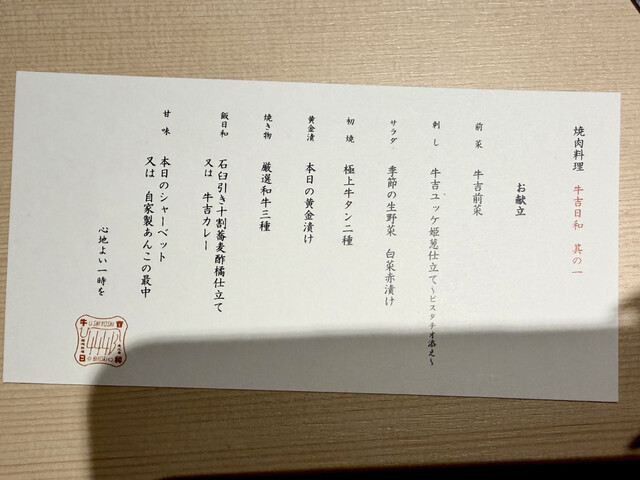 焼肉料理　牛吉日和　其の一
お献立
前菜　牛吉前菜
刺し　牛吉ユッケ姫葱仕立て～ピスタチオ添え～
サラダ　季節の生野菜　白菜赤漬け
初焼　極上牛タン二種
黄金漬　本日の黄金漬け
焼き物　厳選和牛三種
飯日和　石臼引き十割蕎麦酢橘仕立て
又は　牛吉カレー
甘味　本日のシャーベット
又は　自家製あんこの最中
心地よい一時を
牛吉日和
USHIYOSHI
BIYORI